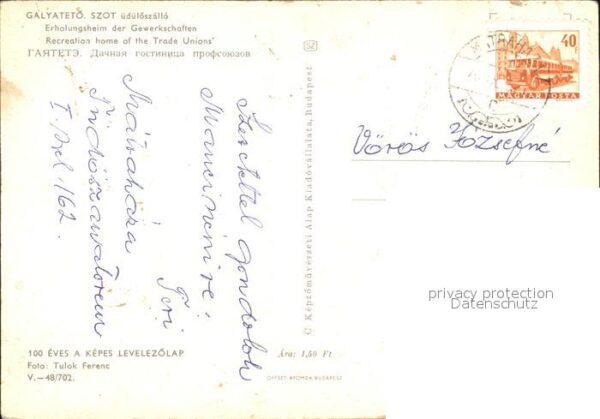 GALYATETŐ. SZOT üdülőszálló
Erholungsheim der Gewerkschaften
Recreation home of the Trade Unions'
ГАЯТЕТЭ. Дачная гостиница профсоюзов
Szeretettel gondolok
Mancinénire.
Teri
Mátraháza
Tüdőszanatórium
I. 162.
© Képzőművészeti Alap Kiadóvállalata, Budapest
40
MAGYAR POSTA
MÁTRAHÁZA
Vörös Józsefné
privacy protection
www.delcampe.net
100 ÉVES A KÉPES LEVELEZŐLAP
Foto: Tulok Ferenc
V.—48/702.
Ára: 1,50 Ft
OFFSET-NYOMDA BUDAPEST